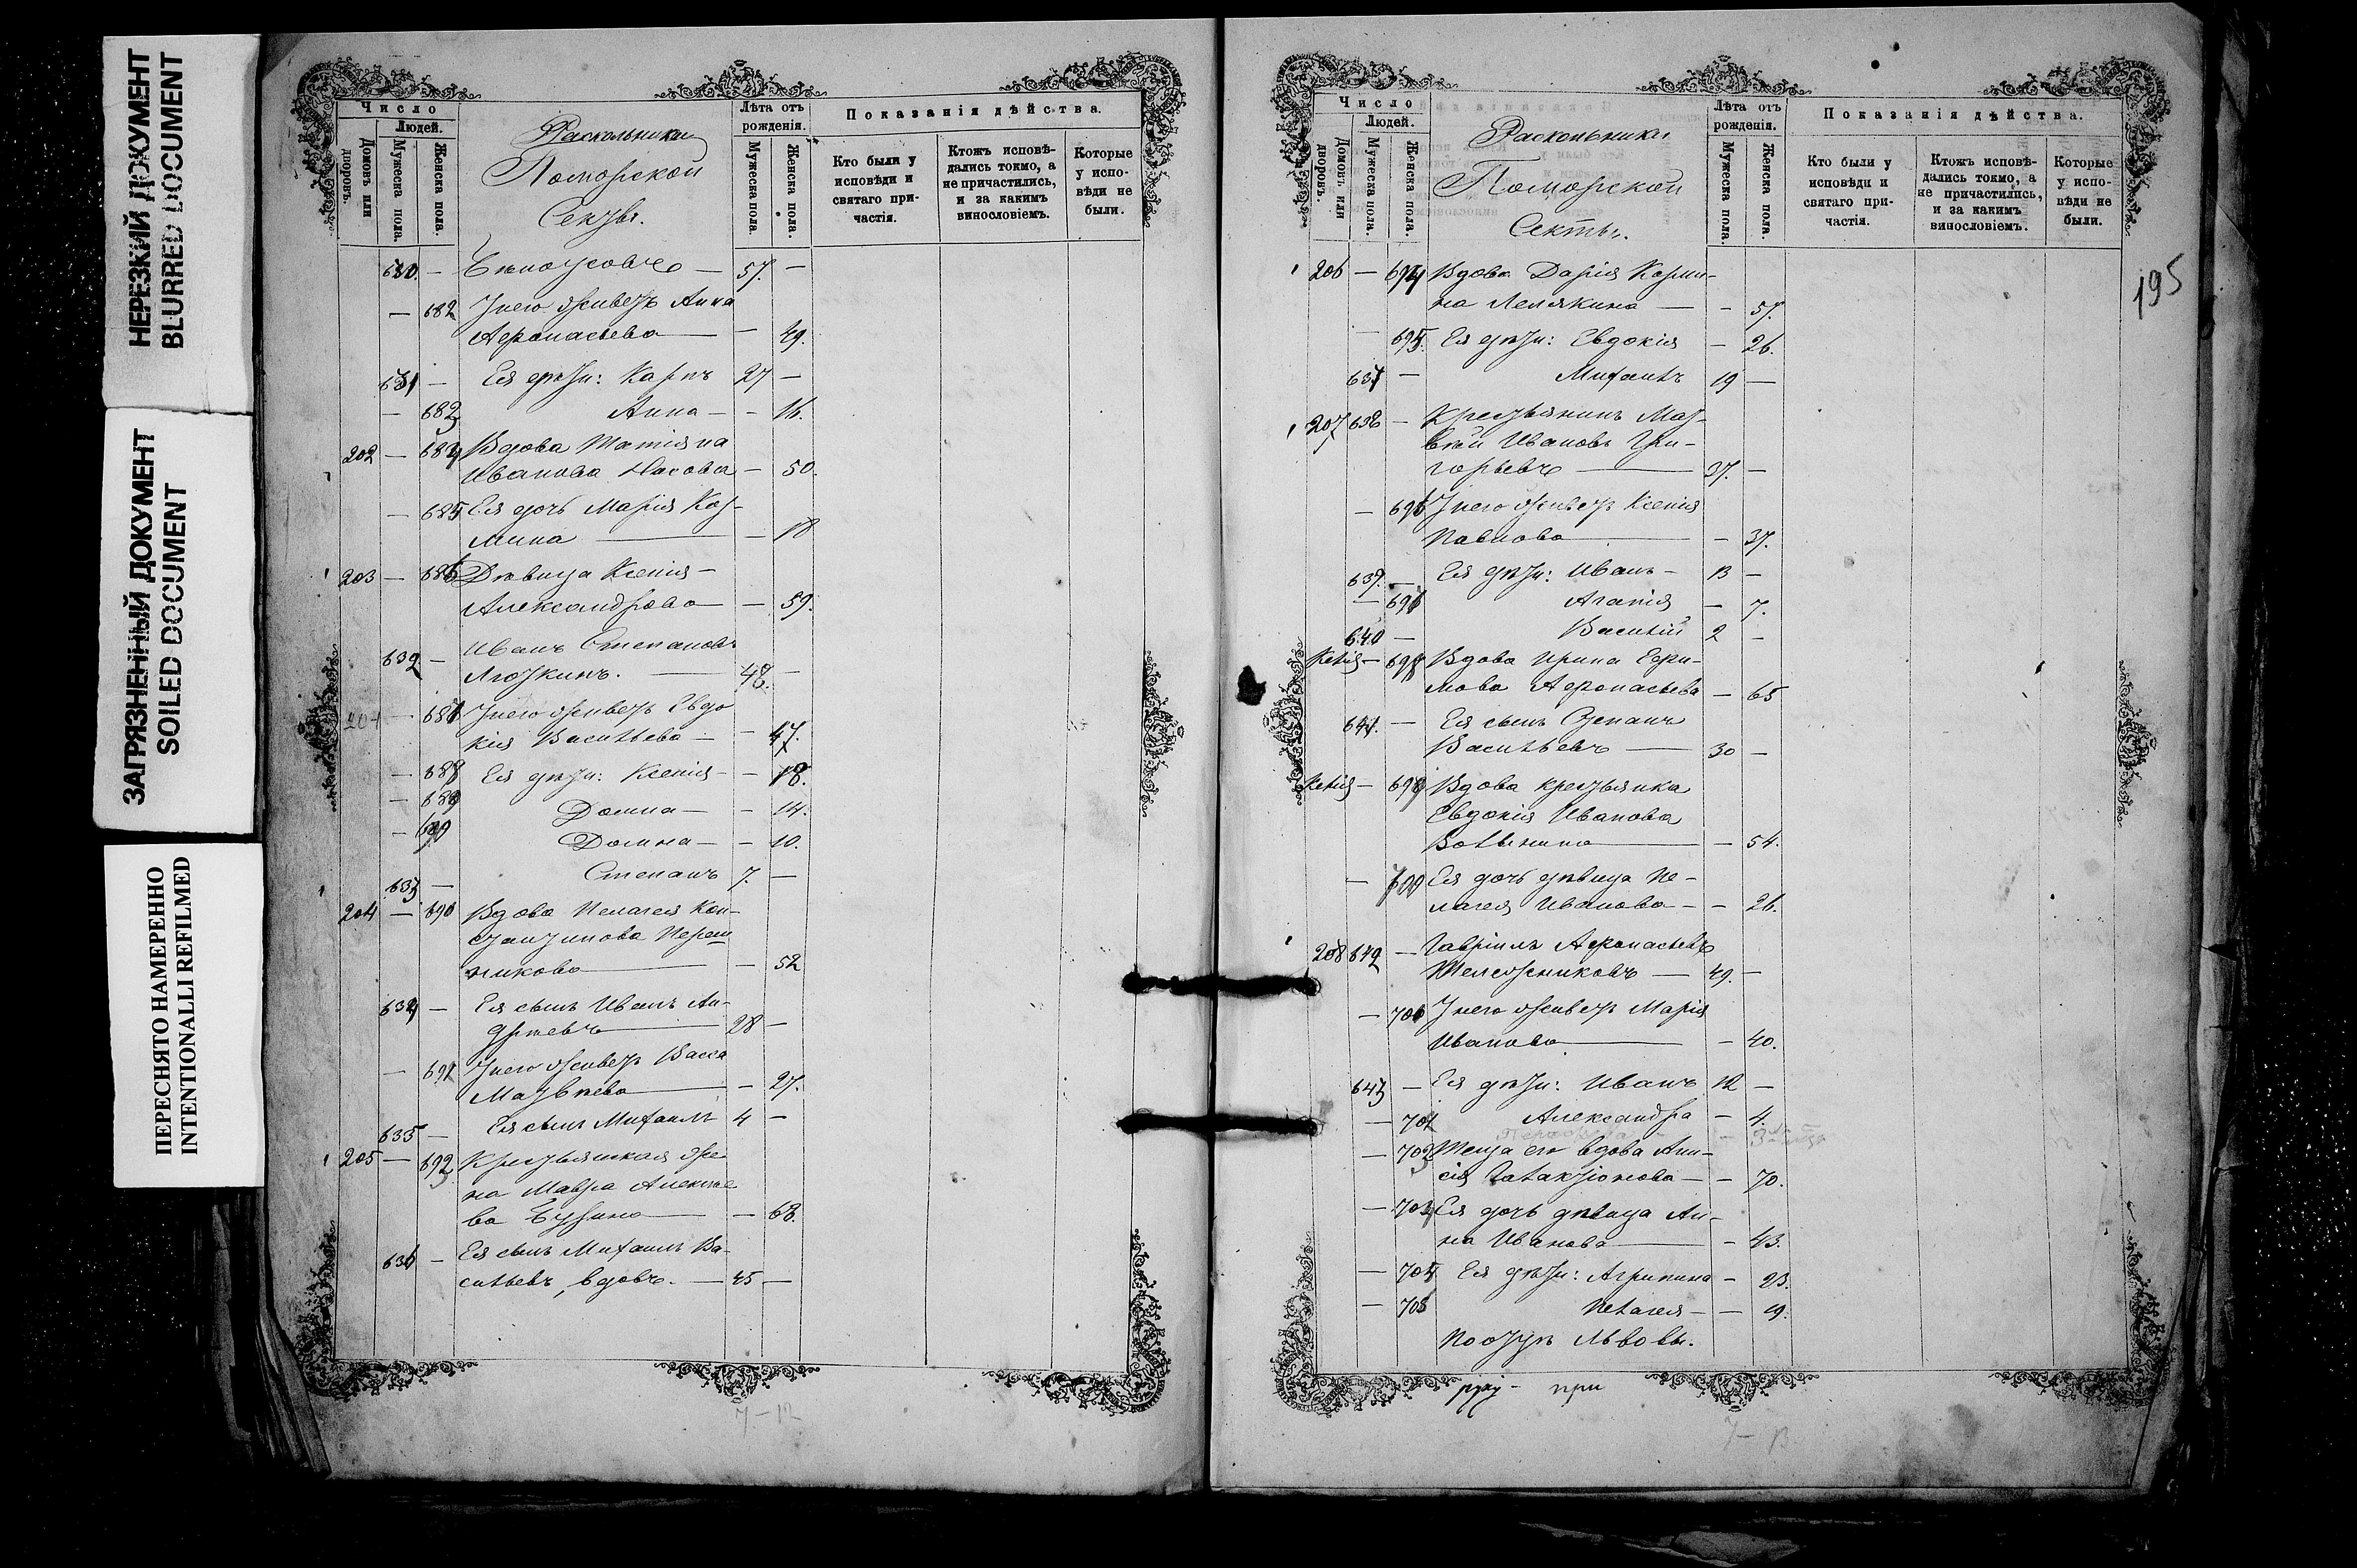 НЕРЕЗКИЙ ДОКУМЕНТ
BLURRED DOCUMENT
ЗАГРЯЗНЕННЫЙ ДОКУМЕНТ
SOILED DOCUMENT
ПЕРЕСНЯТО НАМЕРЕННО
INTENTIONALLI REFILMED
Число
Людей.
Домовъ или дворовъ.
Мужеска пола.
Женска пола.
Раскольники
Поморской
Секты.
Лѣта отъ рожденія.
Мужеска пола.
Женска пола.
Показанія дѣйства.
Кто были у исповѣди и святаго причастія.
Ктожъ исповѣдались токмо, а не причастились, и за какимъ винословіемъ.
Которые у исповѣди не были.
630. — — 57. —
— 682 У него жительв Анна
Афонасьева — — 49.
631 — Ея дѣти: Карпъ 27 —
— 683 Анна — — 16.
202 — 684 Вдова Татіяна
Иванова Носова — 50.
— 685 Ея дочь Марія Коз-
мина — — 18
203 — 686 Дѣвица Ксенія —
Александрова — — 59.
632 — Иванъ Степановъ
— 48. —
У него Евдо
кія Васильева — — 47.
— Ея дѣти: Ксенія — — 18.
— Домна — — 14.
— Домна — — 10.
633 — Степанъ 7. —
204 — 690 Вдова Пелагея Кон-
стантинова
— 52
634 — Ея сынъ Иванъ Ан-
дреевъ — 28 —
— 691 У него Васса
Матвѣева — — 27.
635 — Ея сынъ Михаилъ 4 —
205 — 692 Крестьянская же-
на Мавра Алексѣе
ва — — 68.
636 — Ея сынъ Михаилъ Ва-
сильевъ, вдовъ. — 45 —
Число
Людей.
Домовъ или дворовъ.
Мужеска пола.
Женска пола.
Раскольники
Поморской
Секты.
Лѣта отъ рожденія.
Мужеска пола.
Женска пола.
Показанія дѣйства.
Кто были у исповѣди и святаго причастія.
Ктожъ исповѣдались токмо, а не причастились, и за какимъ винословіемъ.
Которые у исповѣди не были.
195
206 — 694 Вдова Дарія Козми-
на — — 57.
— 695. Ея дѣти: Евдокія — 26.
637 — Михаилъ 19 —
207 638 — Крестьянинъ Мат-
вѣй Ивановъ Гри-
горьевъ — 37. —
— 696 У него Ксенія
Павлова — — 37.
639. — Ея дѣти: Иванъ — 13 —
— Агапія — 7.
640 — Василій 2 —
Келія — Вдова Ирина Ефи-
мова Афонасьева — 65
641. — Ея сынъ Степанъ
Васильевъ — 30 —
Келія — Вдова крестьянка
Евдокія Иванова
— 54.
— Ея дочь дѣвица Пе-
лагея Иванова — — 26.
208 642 — Гавріилъ Афонасьевъ
— 49. —
— У него Марія
Иванова — — 40.
643 — Ея дѣти: Иванъ 12 —
— 701 Александра — 4.
— Теща его вдова Ани-
сія Галактіонова — — 70.
— Ея дочь дѣвица Ан-
на Иванова — — 43.
— Ея дѣти: Агрипина — 23.
— Пелагея — — 19.
Львовы.
руку- при